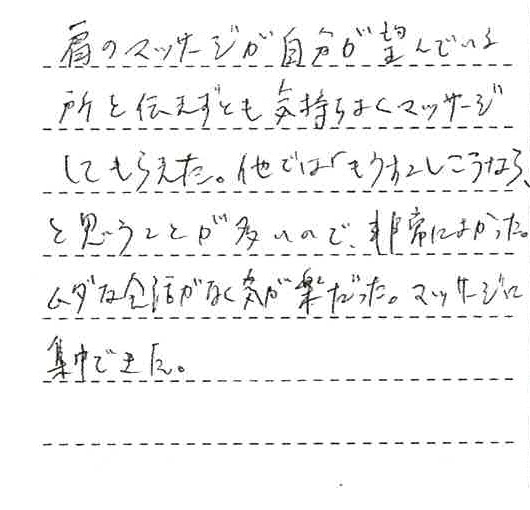 肩のマッサージが自分が望んでいる
所を伝えずとも気持ちよくマッサージ
してもらえた。他では「もう少しこうなら、
と思うことが多いので、非常によかった。
ムダな会話がなく気が楽だった。マッサージに
集中できた。